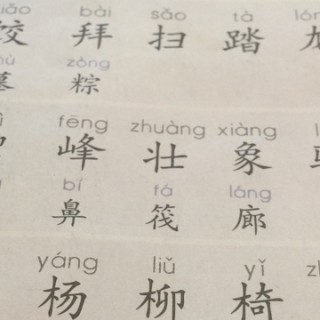 bài sǎo tà
拜 扫 踏
zòng
墓 粽
fēng zhuàng xiàng
峰 壮 象
bí fá láng
鼻 筏 廊
yáng liǔ yǐ
杨 柳 椅